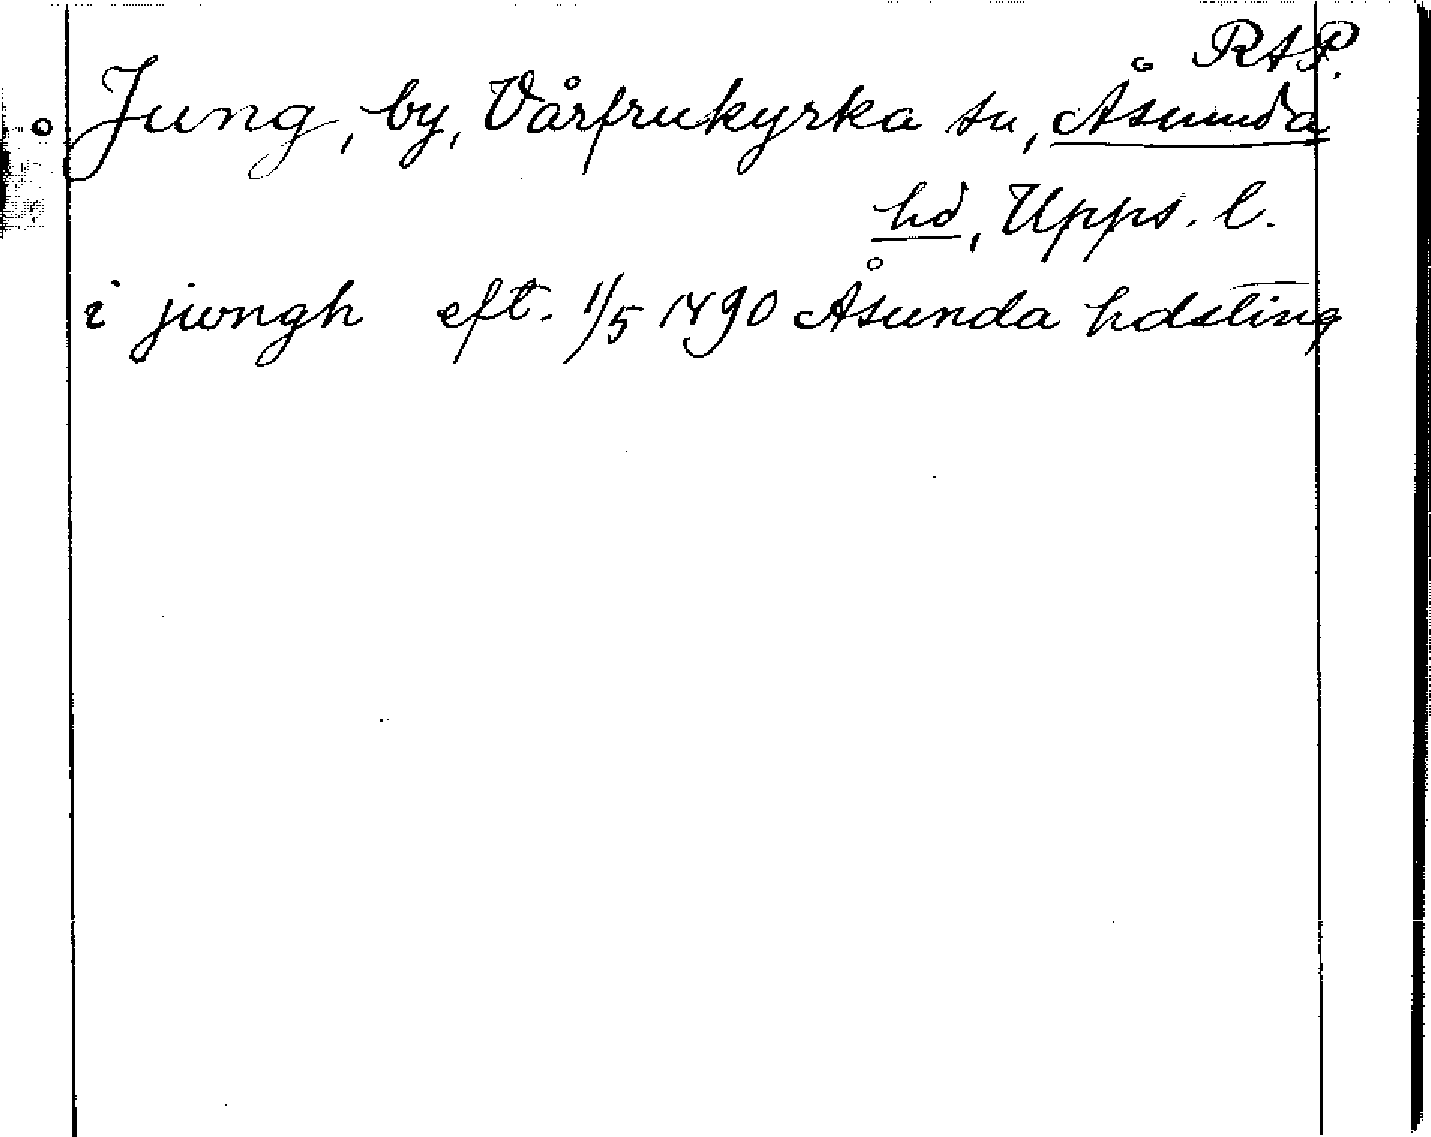 RAP.
Jung, by, Vårfrukyrka sn, Åsunda
hd, Upps. l.
i jwngh eft. 1/5 1490 Åsunda hdsting